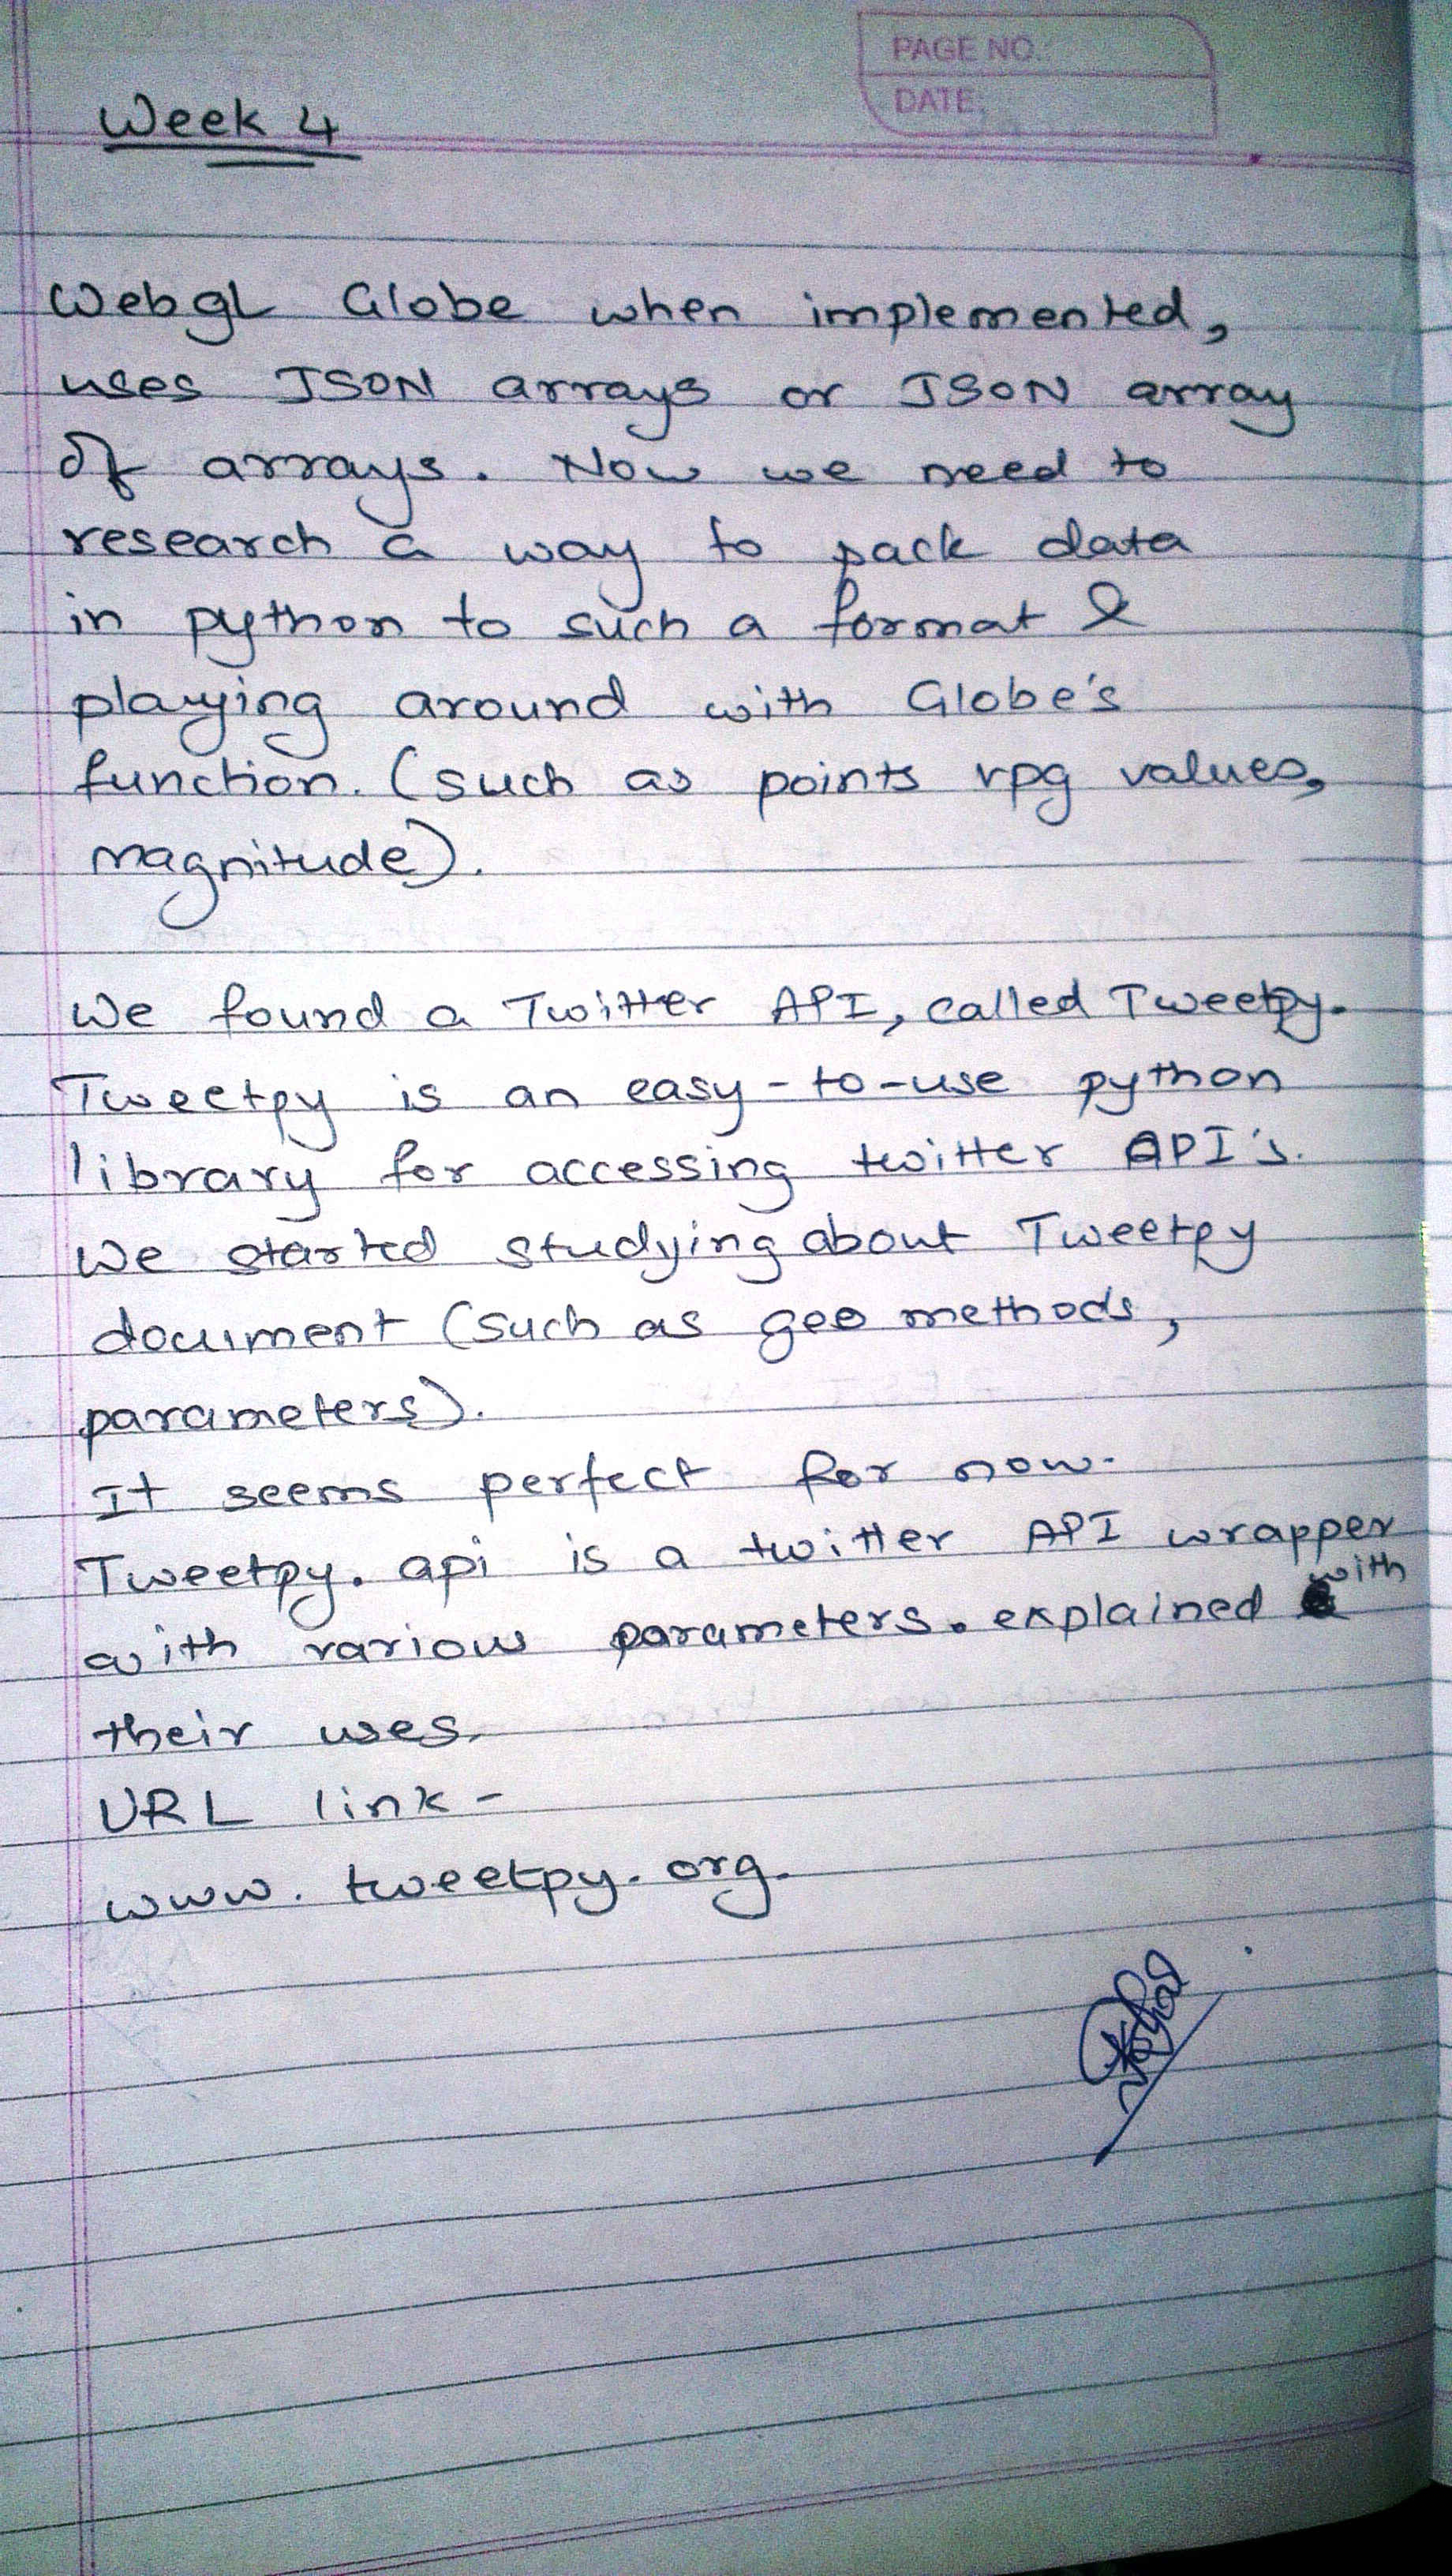 PAGE NO.:
DATE:
Week 4
WebgL Globe when implemented,
uses JSON arrays or JSON array
of arrays. Now we need to
research a way to pack data
in python to such a format &
playing around with Globe's
function. (such as points rpg values,
magnitude).
We found a Twitter API, called Tweetpy.
Tweetpy is an easy-to-use python
library for accessing twitter API's.
We started studying about Tweetpy
document (such as geo methods,
parameters).
It seems perfect for now.
Tweetpy. api is a twitter API wrapper
with various parameters. explained with
their uses.
URL link -
www. tweetpy. org.